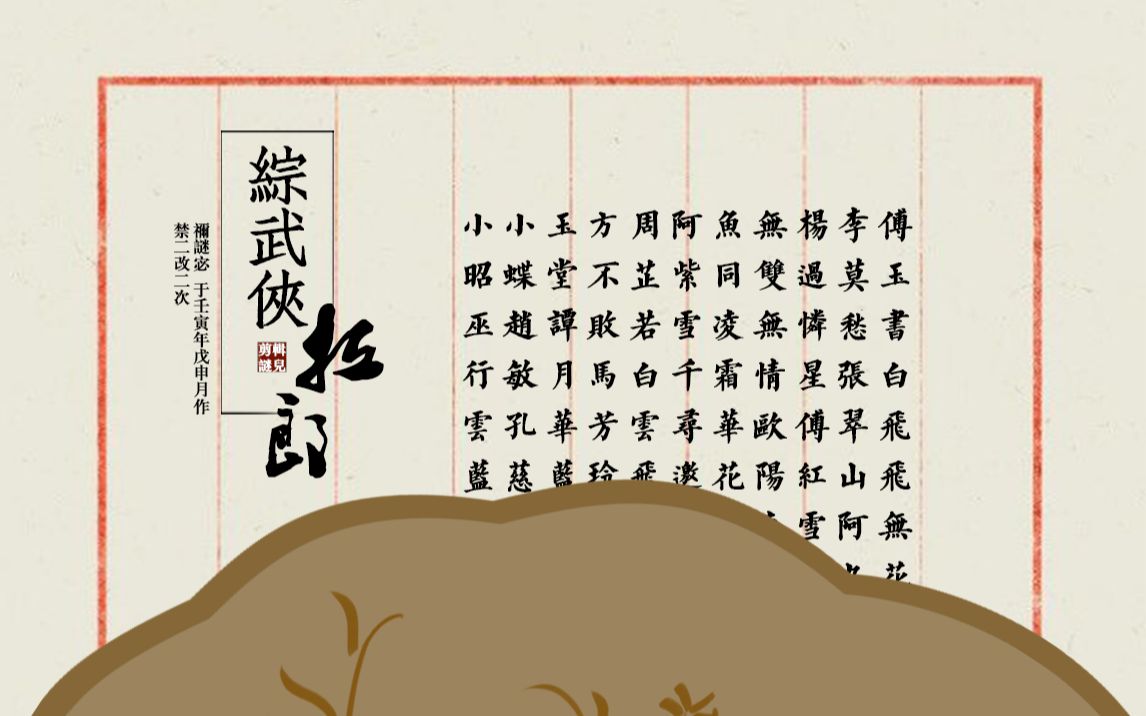 傅玉書白飛飛無花
李莫愁張翠山阿
楊過憐星傅紅雪
無雙無情歐陽
魚同凌霜華花
阿紫雪千尋邀
周芷若白雲飛
方不敗馬芳玲
玉堂譚月華藍
小蝶趙敏孔慈
小昭巫行雲藍
綜武俠
拉郎
禰謎宓 于壬寅年戊申月作
禁二改二次